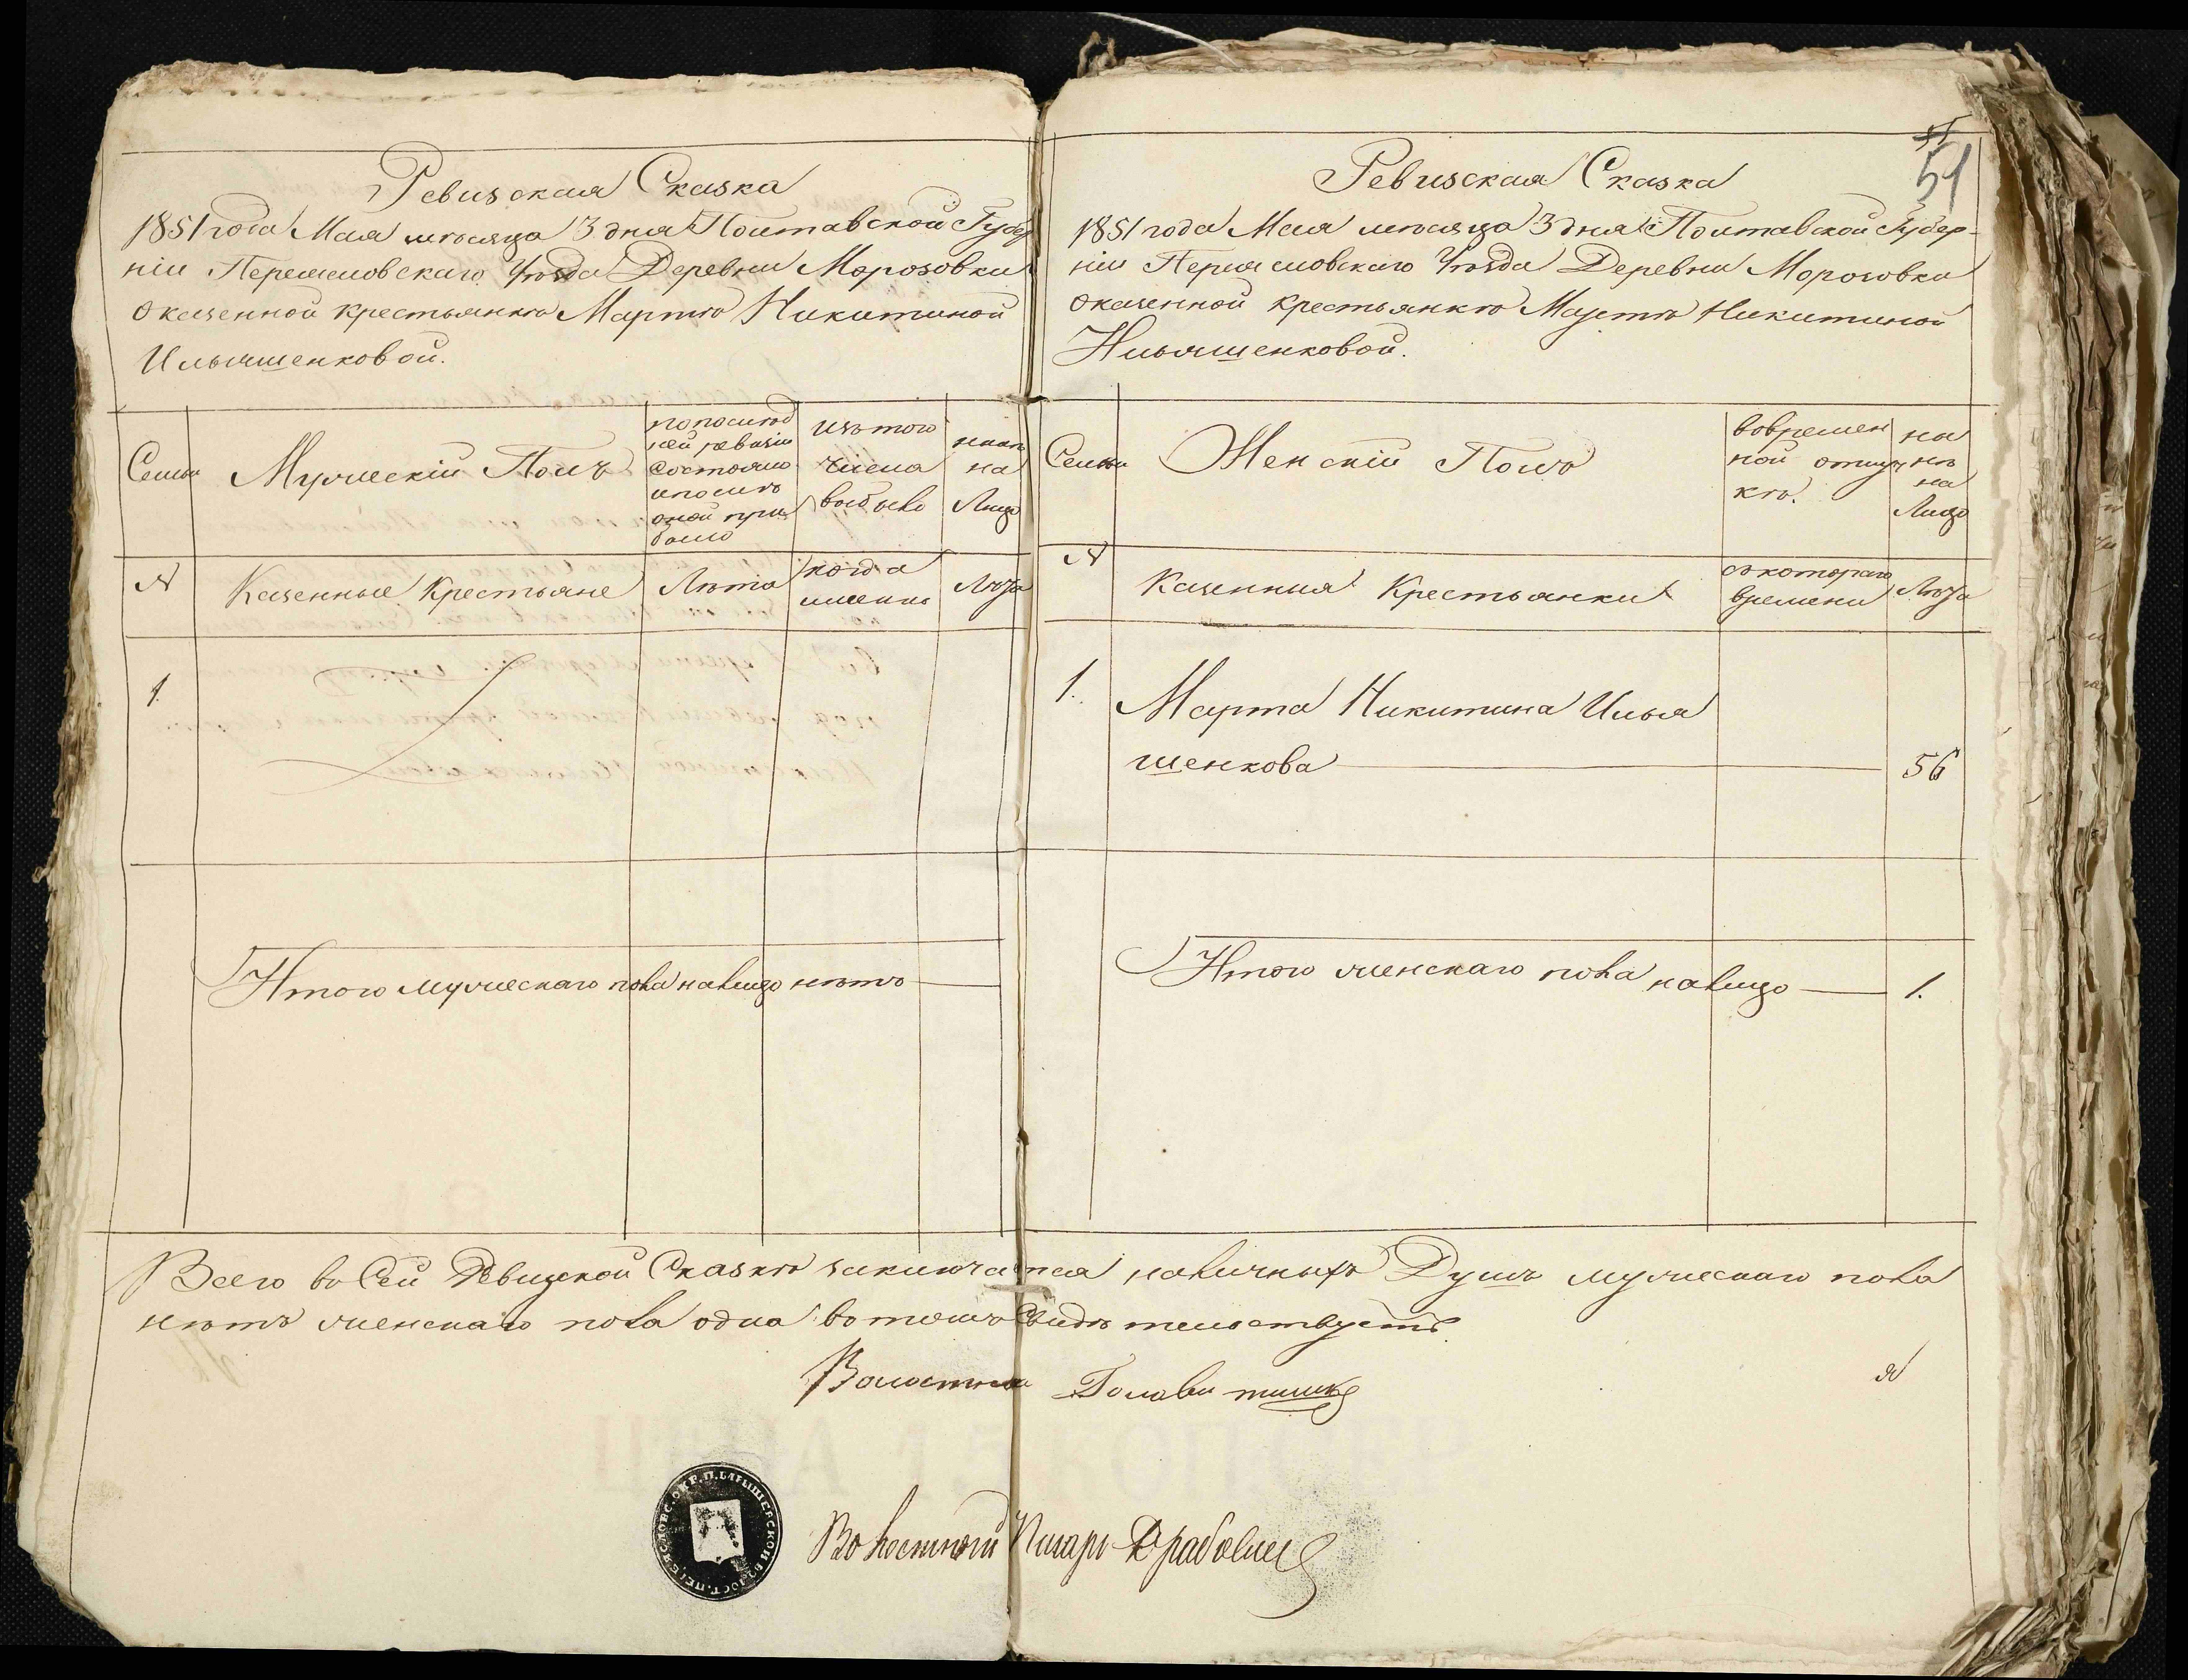 Ревизская Сказка
1851 года Мая месяца 3 дня Полтавской Губер
ніи Переяславскаго Уѣзда Деревни Морозовки
о казенной крестьянкѣ Мартѣ Никитиной
Ильяшенковой.
Семьи
Мужескій Полъ
по послѣд
ней ревизіи
состояло
и послѣ
оной при
было
изъ того
числа
выбыло
нынѣ
на
Лицо
№
Казенные Крестьяне
Лѣта
когда
именно
Лѣта
1.
Итого мужескаго пола налицо нѣтъ
51
Ревизская Сказка
1851 года Мая месяца 3 дня Полтавской Губер-
ніи Переясловскаго Уѣзда Деревни Морозовки
о казенной крестьянкѣ Мартѣ Никитиной
Ильяшенковой.
Семьи
Женскій Полъ
во времен
ной отлуч
кѣ.
ны
нѣ
на
Лицо
№
Казенныя Крестьянки
съ котораго
времени
Лѣта
1.
Марта Никитина Илья
шенкова
56
Итого женскаго пола налицо
1.
Всего во Сей Ревизской Сказкѣ заключается наличныхъ Душъ мужескаго пола
нѣтъ женскаго пола одна въ томъ свидѣтельствуетъ
Волостной Голова
Волостной Писарь